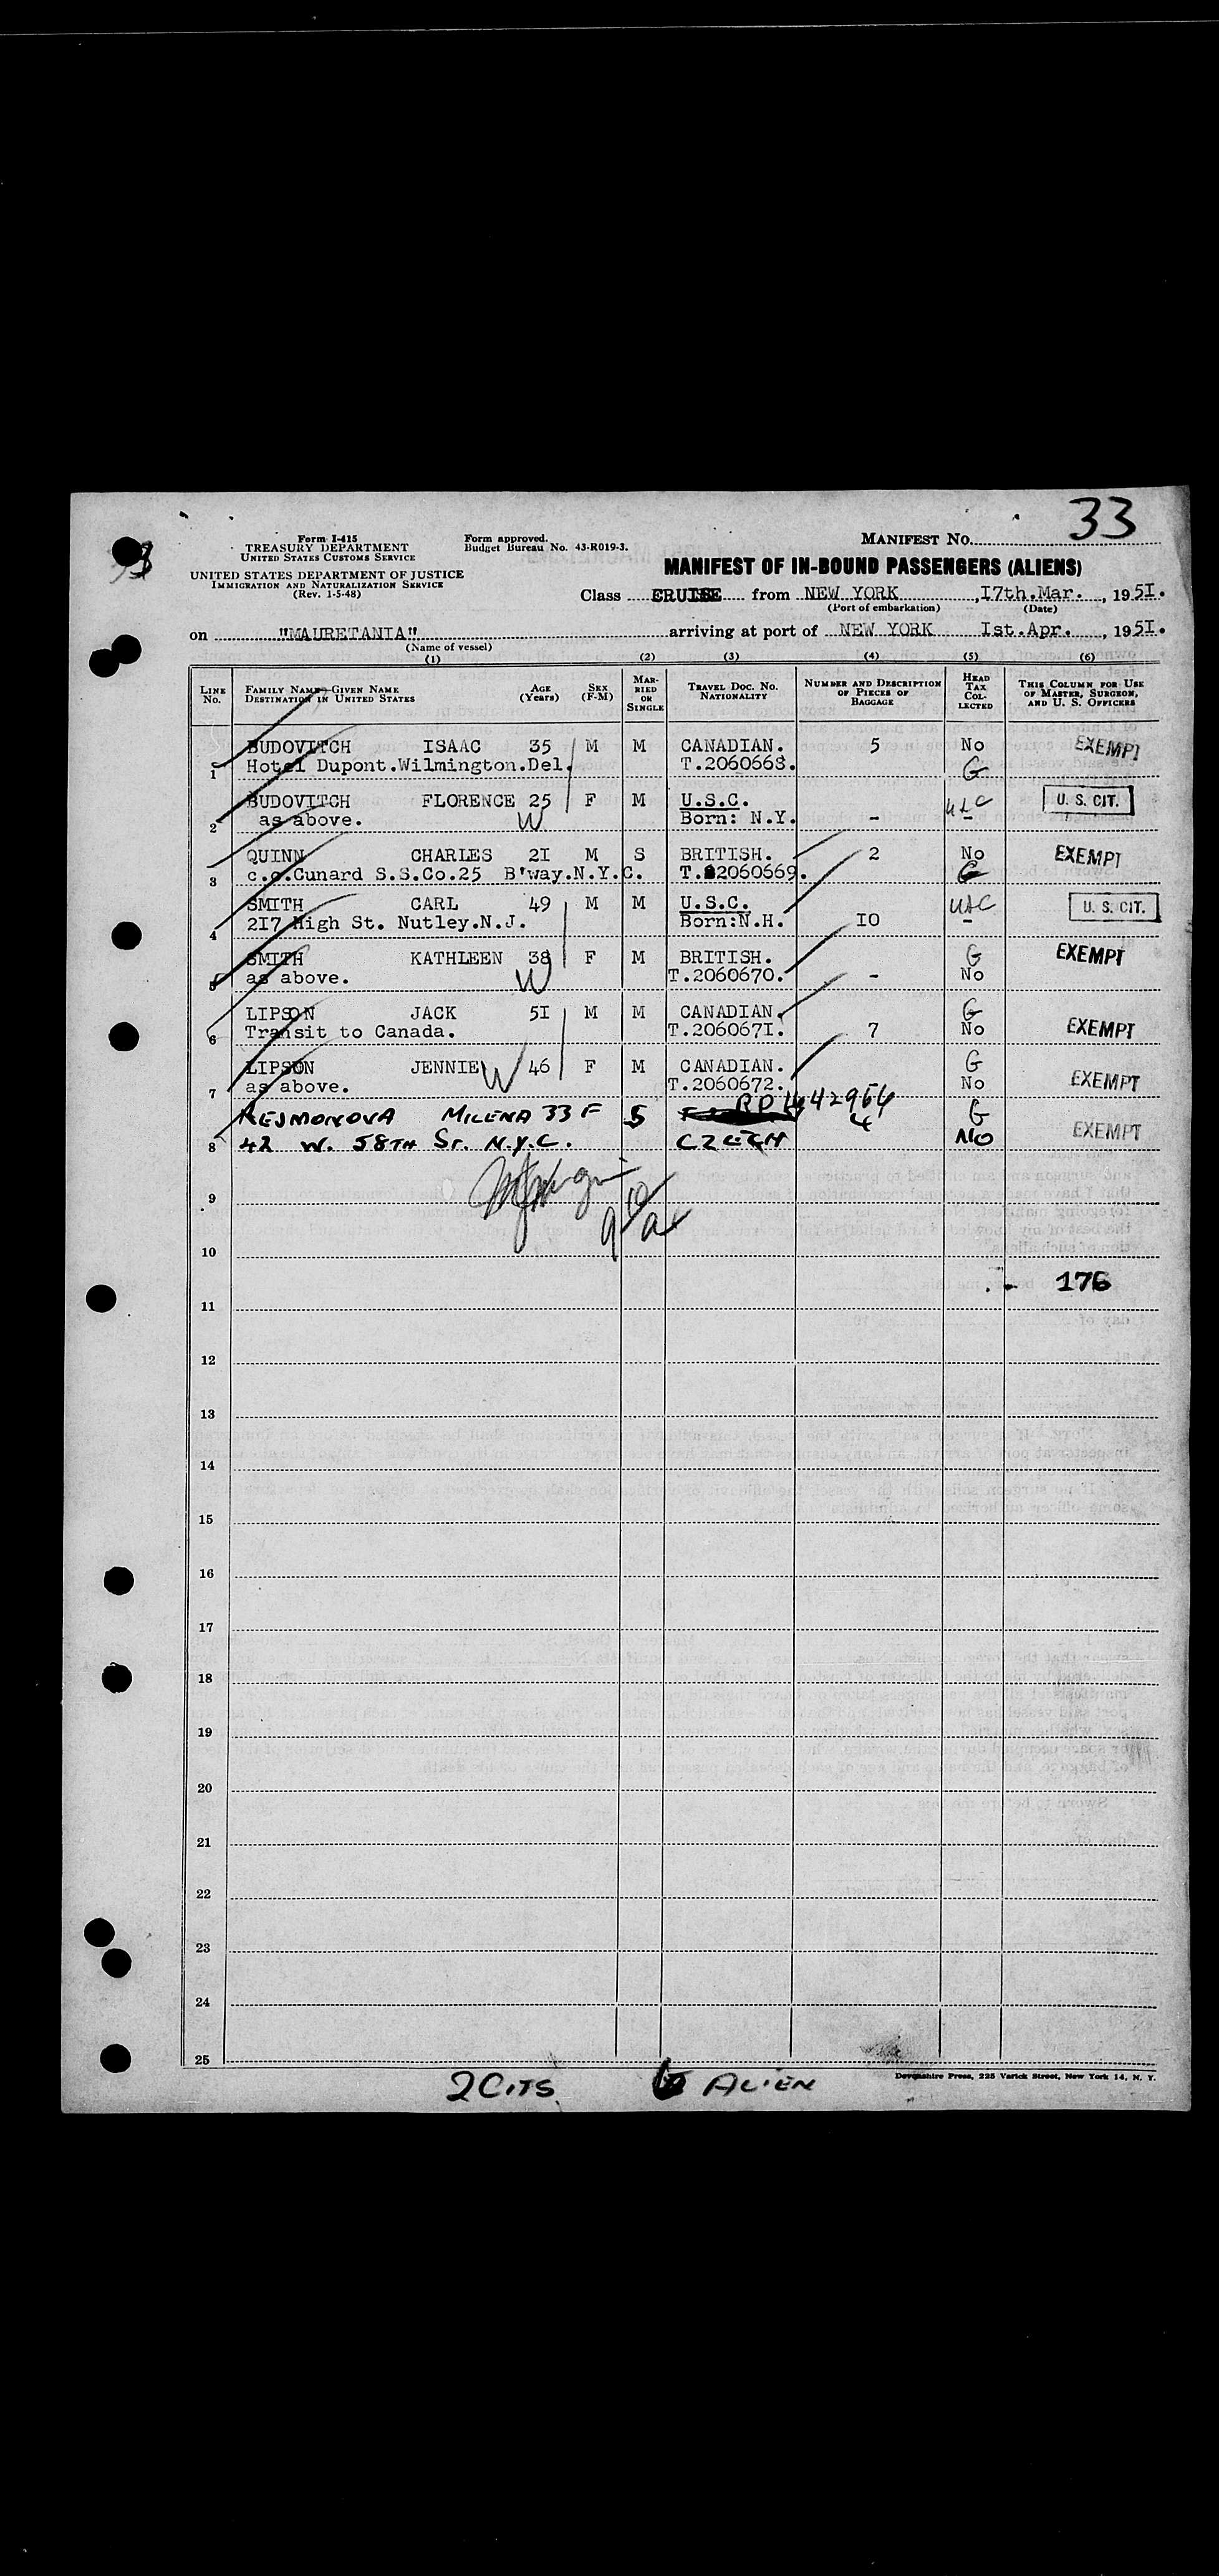 33
Form I-415
TREASURY DEPARTMENT
UNITED STATES CUSTOMS SERVICE
UNITED STATES DEPARTMENT OF JUSTICE
IMMIGRATION AND NATURALIZATION SERVICE
(Rev. 1-5-48)
Form approved.
Budget Bureau No. 43-R019-3.
MANIFEST No.
MANIFEST OF IN-BOUND PASSENGERS (ALIENS)
Class CRUISE from NEW YORK, I7th.Mar., 1951.
(Port of embarkation) (Date)
on "MAURETANIA" arriving at port of NEW YORK Ist.Apr., 1951.
(Name of vessel)
(1) (2) (3) (4) (5) (6)
LINE No. FAMILY NAME—GIVEN NAME DESTINATION IN UNITED STATES AGE (Years) SEX (F-M) MARRIED OR SINGLE TRAVEL DOC. No. NATIONALITY NUMBER AND DESCRIPTION OF PIECES OF BAGGAGE HEAD TAX COLLECTED THIS COLUMN FOR USE OF MASTER, SURGEON, AND U. S. OFFICERS
BUDOVITCH ISAAC 35 M M CANADIAN. 5 No EXEMPT
1 Hotel Dupont.Wilmington.Del. T.2060668. G
BUDOVITCH FLORENCE 25 F M U.S.C. U.S. CIT.
2 as above. W Born: N.Y. -
QUINN CHARLES 2I M S BRITISH. 2 No EXEMPT
3 c.o.Cunard S.S.Co.25 B'way.N.Y.C. T.2060669. G
SMITH CARL 49 M M U.S.C. USC U.S. CIT.
4 2I7 High St. Nutley.N.J. Born:N.H. IO -
SMITH KATHLEEN 38 F M BRITISH. G EXEMPT
5 as above. W T.2060670. - No
LIPSON JACK 5I M M CANADIAN. G
6 Transit to Canada. T.206067I. 7 No EXEMPT
LIPSON JENNIE W 46 F M CANADIAN. G
7 as above. T.2060672. No EXEMPT
REJMONOVA MILENA 33 F S RP G
8 42 W. 58TH ST. N.Y.C. CZECH 4 NO EXEMPT
9
10
176
11
12
13
14
15
16
17
18
19
20
21
22
23
24
25
2 CITS 6 ALIEN
Devonshire Press, 225 Varick Street, New York 14, N. Y.